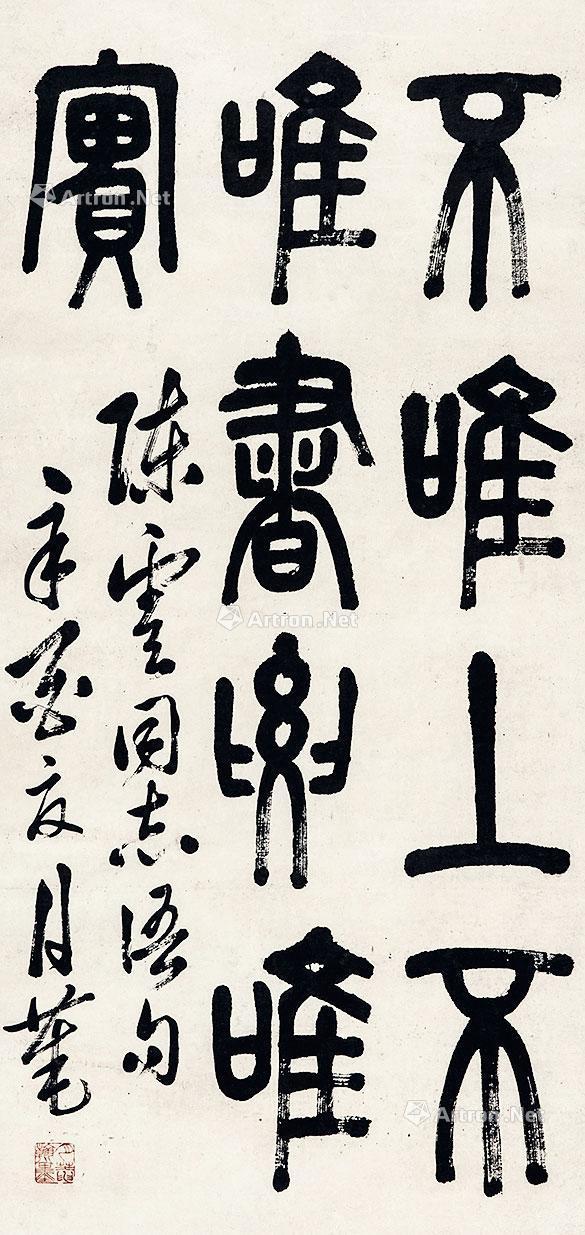 不唯上不
唯書要唯
實
陳雲同志語句
辛酉夏月
Artron.Net
Artron.Net
Artron.Net